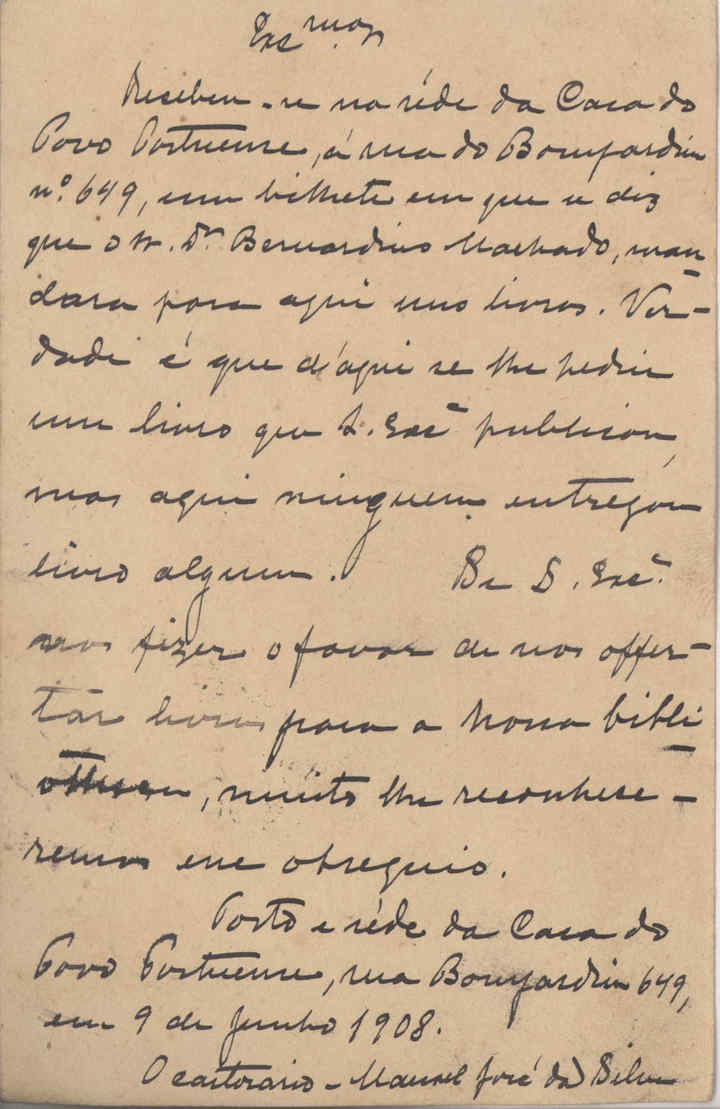 Exc.mos
Recebeu-se na séde da Casa do
Povo Portuense, á rua do Bomjardim
nº. 649, um bilhete em que se diz
que o sr. Dr. Bernardino Machado, man-
dara para aqui uns livros. Ver-
dade é que d'aqui se lhe pediu
um livro que S. Excª publicou,
mas aqui ninguem entregou
livro algum. Se S. Excª.
nos fizer o favor de nos offer-
tar livros para a nossa bibli-
otheca, muito lhe reconhece-
remos esse obsequio.
Porto e séde da Casa do
Povo Portuense, rua Bomjardim 649,
em 9 de Junho 1908.
O cartorario - Manuel José da Silva